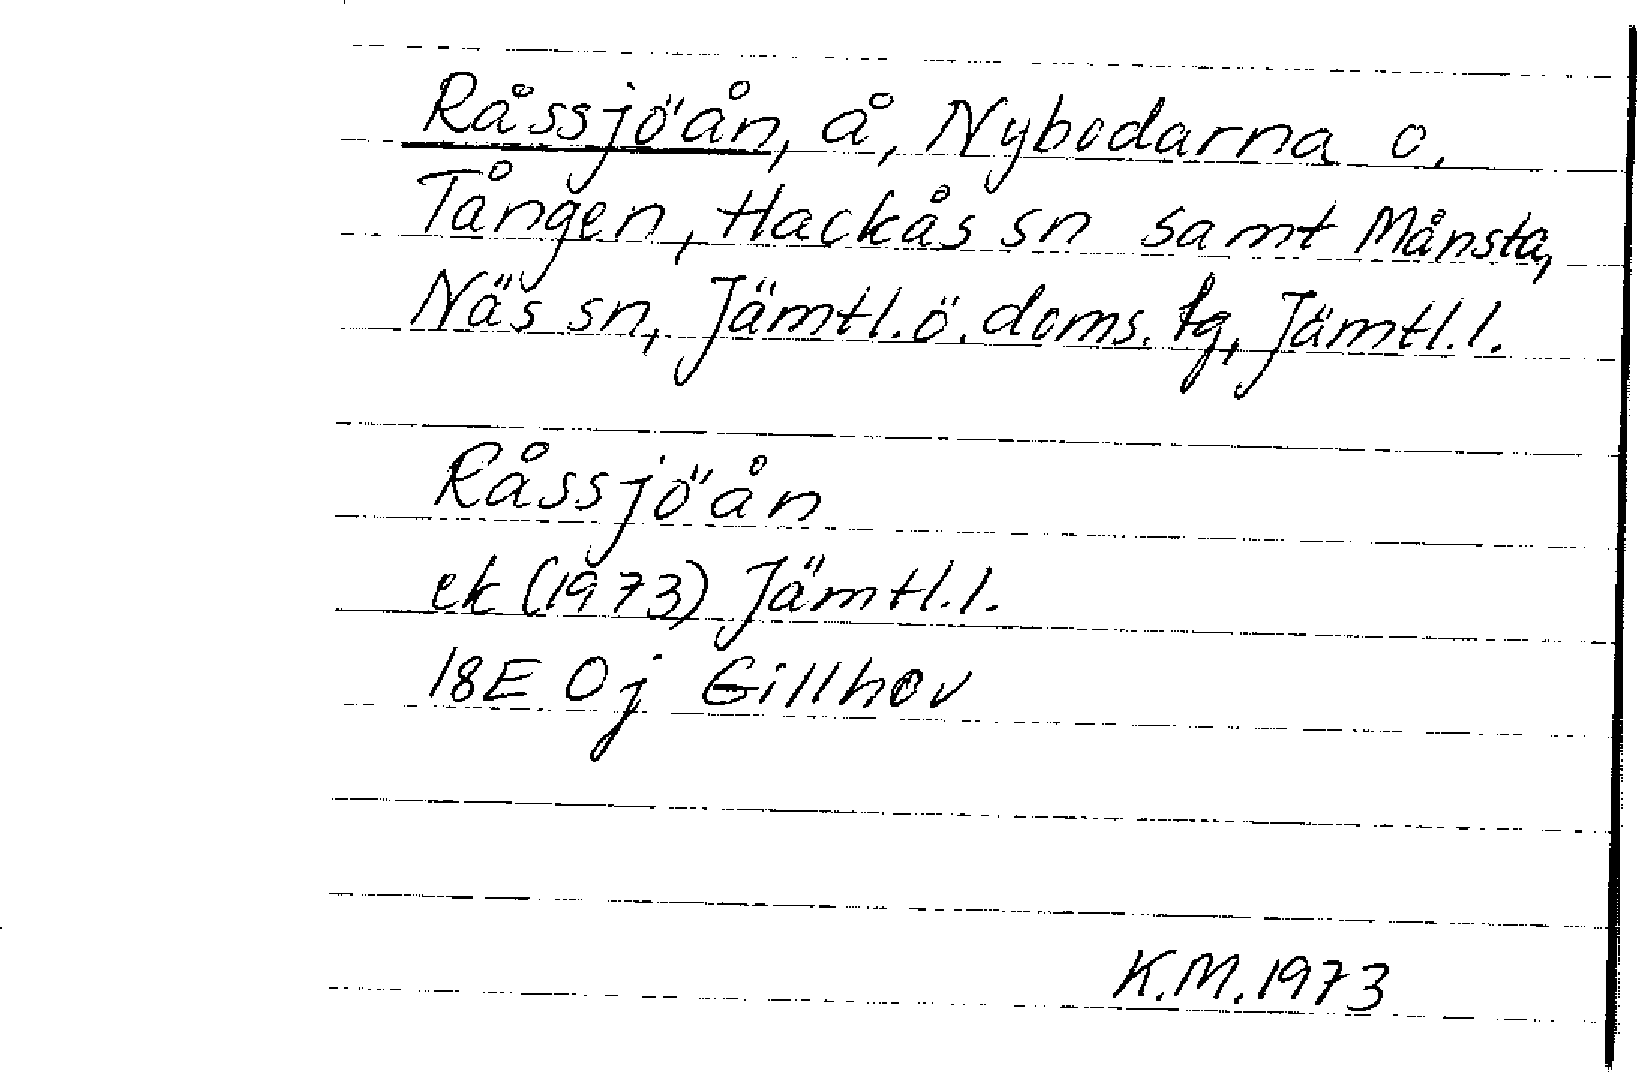 Råssjöån, å, Nybodarna o.
Tången, Hackås sn samt Månsta,
Näs sn, Jämtl.ö.doms.tg, Jämtl.l.
Råssjöån
ek (1973) Jämtl.l.
18E 0j Gillhov
K.M.1973